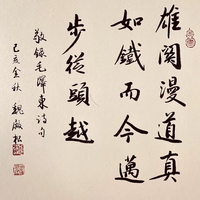 雄関漫道真
如鐵而今邁
步從頭越
敬錄毛澤東詩句
己亥金秋 魏啟松